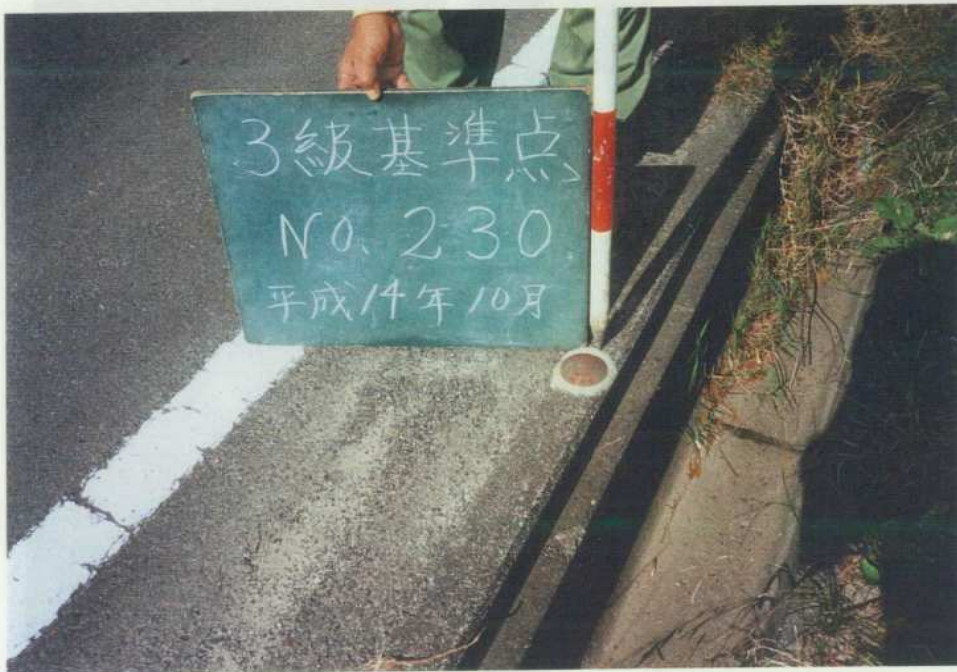 3級基準点
NO. 230
平成14年10月